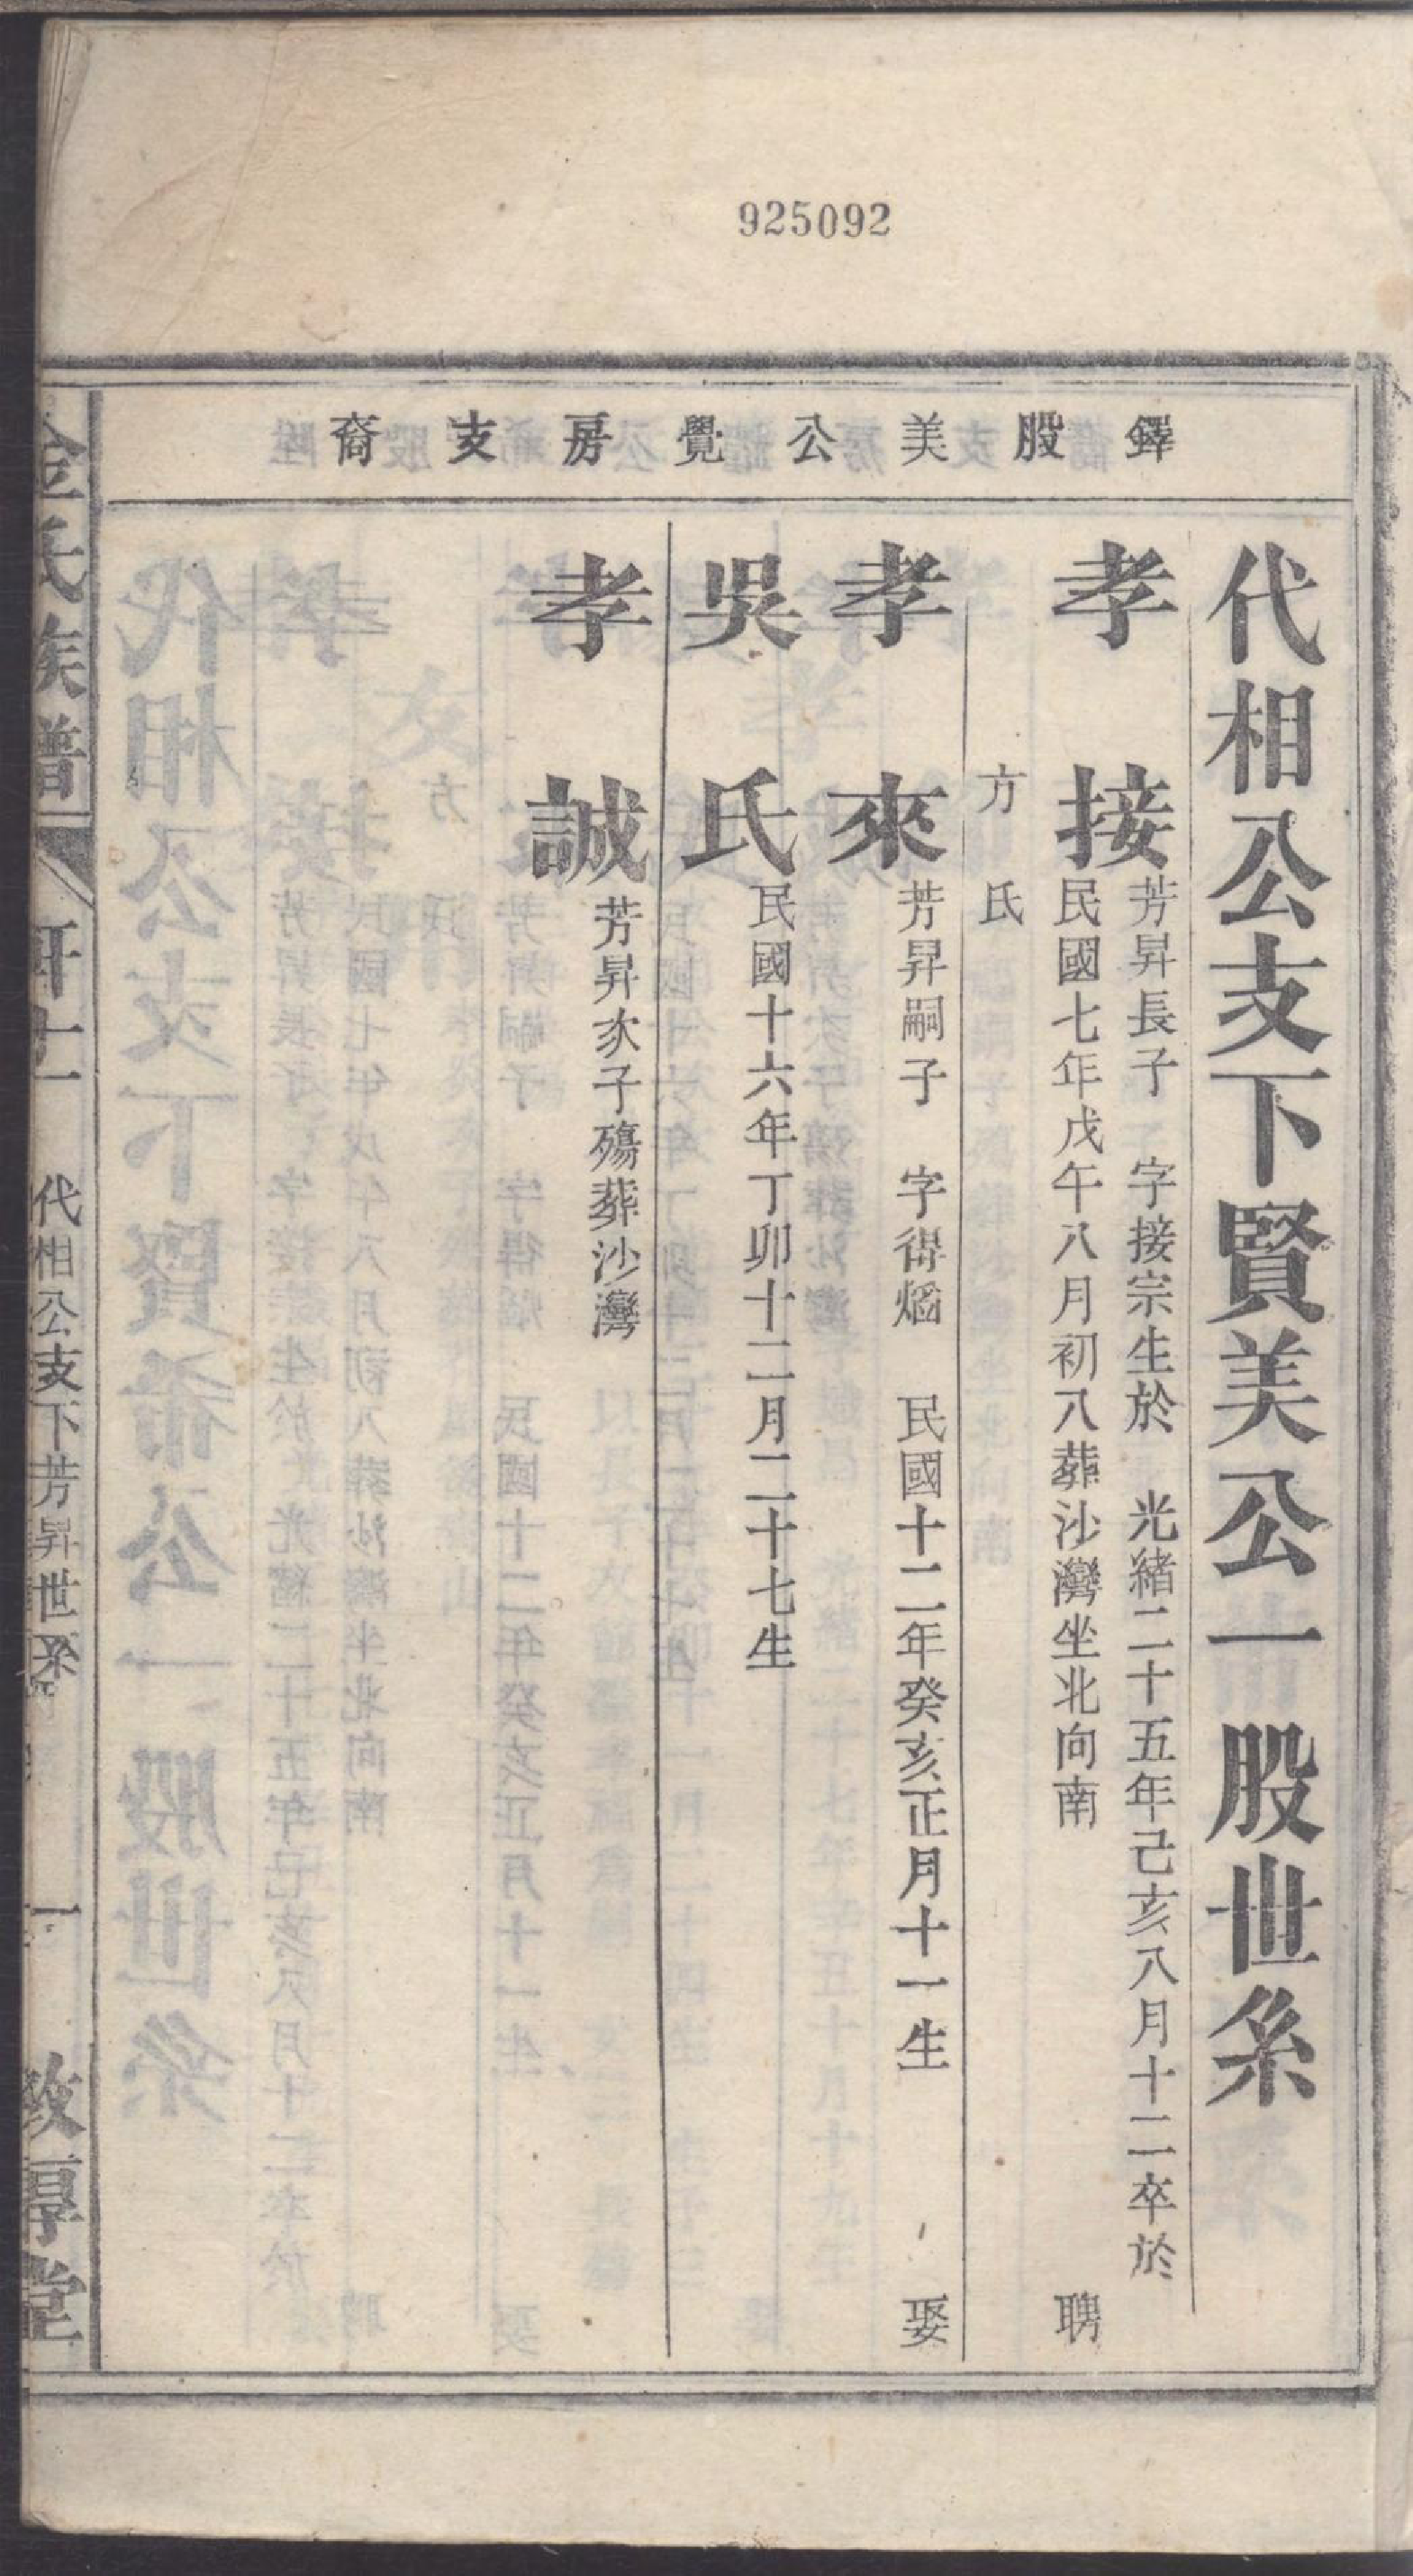 925092
鐸股美公覺房支裔
代相公支下賢美公一股世系
孝接
芳昇長子 字接宗生於 光緒二十五年己亥八月十二卒於
民國七年戊午八月初八葬沙灣坐北向南 聘
方氏
孝來
芳昇嗣子 字得熖 民國十二年癸亥正月十一生 娶
吳氏
民國十六年丁卯十二月二十七生
孝誠
芳昇次子殤葬沙灣
金氏族譜
代相公支下芳昇世系
一
敦厚堂